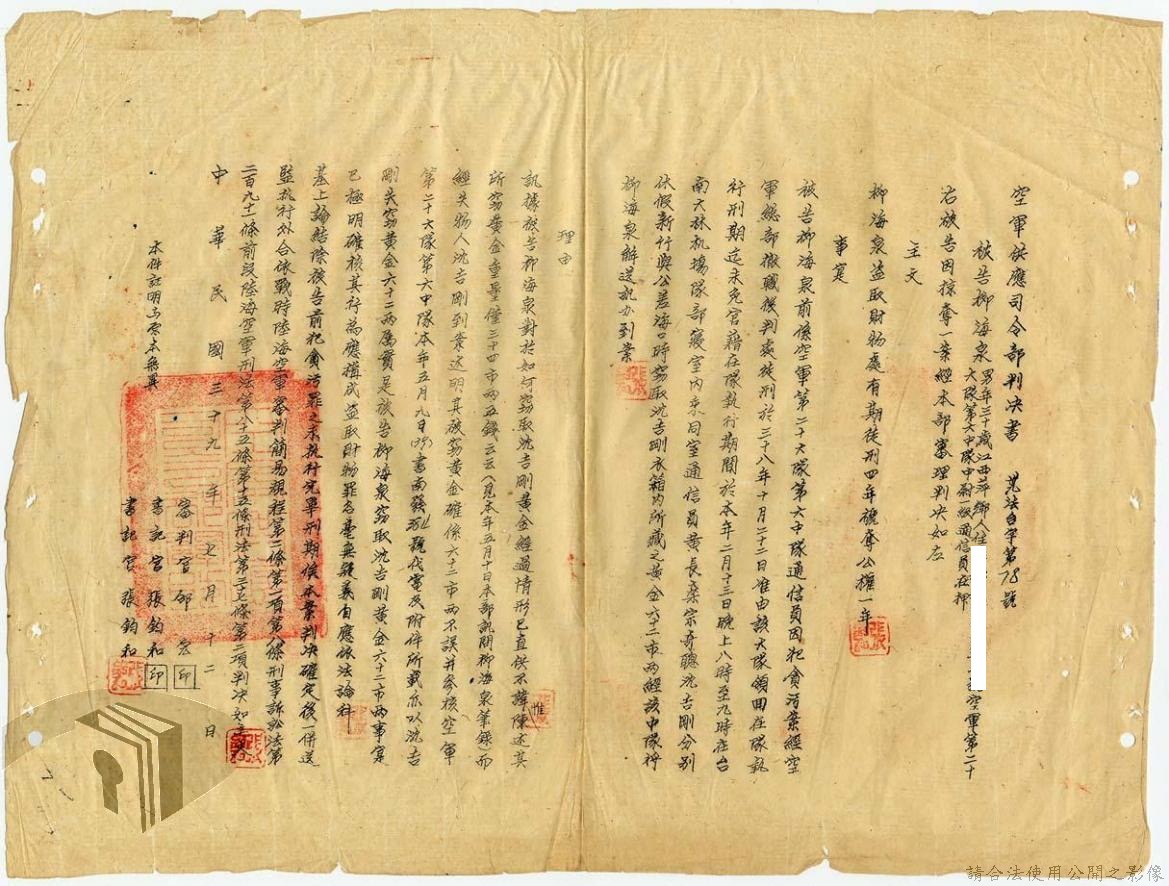 空軍供應司令部判決書　　晃法自字第78號
被告柳海泉 男年三十歲江西萍鄉人住
空軍第二十
大隊第六中隊中尉一級通信員在押
右被告因掠奪一案經本部審理判決如右
主文
柳海泉盜取財物處有期徒刑四年褫奪公權一年
事實
被告柳海泉前係空軍第二十大隊第六中隊通信員因犯貪污案經空
軍總部撤職後判處徒刑於三十八年十月二十二日准由該大隊領回在隊執
行刑期迄未免官藉在隊執行期間於本年二月十三日晚上八時至九時在台
南大林机場隊部寢室內乘同室通信員黃長桑宗奇聽沈吉剛分別
休假新竹與公差海口時竊取沈吉剛衣箱內所藏之黃金六十二市兩經該中隊將
柳海泉解送訊办到案
理由
訊據被告柳海泉對於如何竊取沈吉剛黃金經過情形已直供不諱惟陳述其
所竊黃金重量僅三十四市兩五錢云云（見本年五月十日本部訊問柳海泉筆錄）而
經失物人沈吉剛到案述明其被竊黃金確係六十二市兩不誤并參核空軍
第二十大隊第六中隊本年五月九日書南發號代電及附件所載亦以沈吉
剛失竊黃金六十二兩屬實是被告柳海泉竊取沈吉剛黃金六十二市兩事実
已極明確核其行為應構成盜取財物罪名毫無疑義自應依法論科
基上論結除被告前犯貪污罪之未執行完畢刑期俟本案判决確定後一併送
監执行外合依戰時陸海空軍審判簡易規程第二條第一項第八條刑事訴訟法第
二百九十一條前段陸海空軍刑法第八十五條第十五條刑法第三十七條第二項判決如主文
中華民國三十九年七月十二日
審判官邱宏 印
書記官張鈞和 印
本件証明與原本無異
書記官張鈞和
請合法使用公開之影像